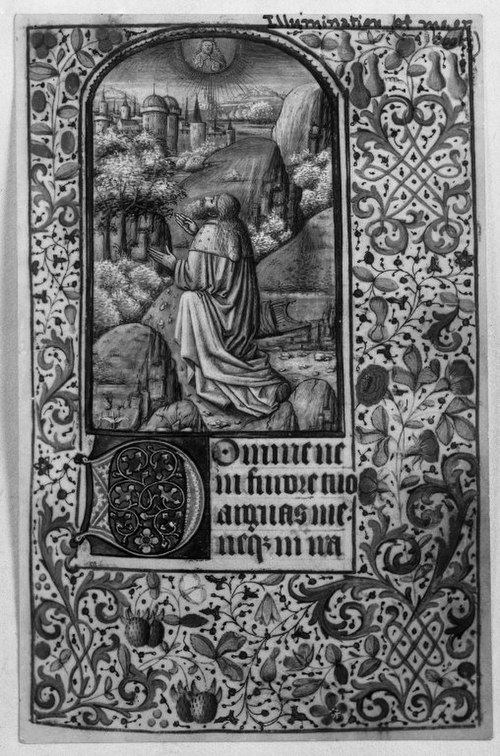 Illumination
Domine ne
in furore tuo
arguas me
neqꝫ in ira